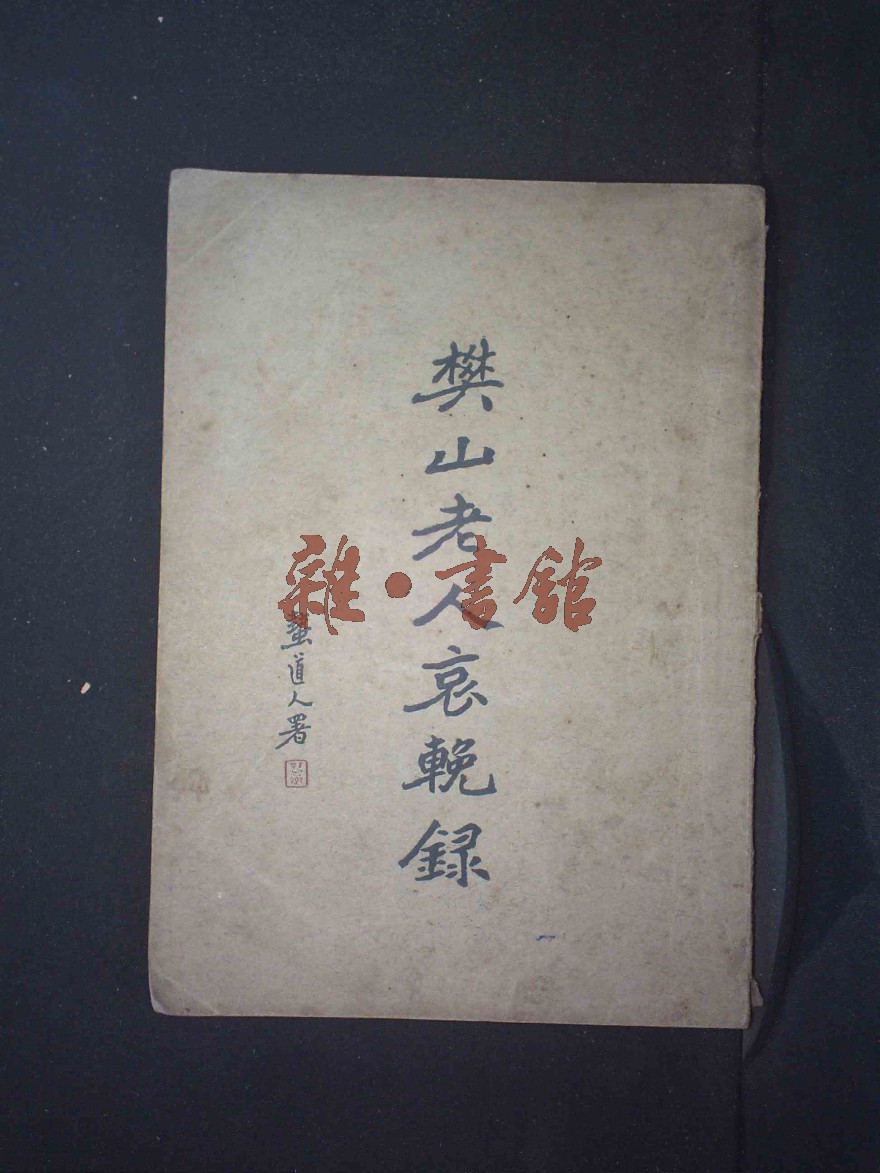 樊山老人哀輓錄
道人署
雜·書館